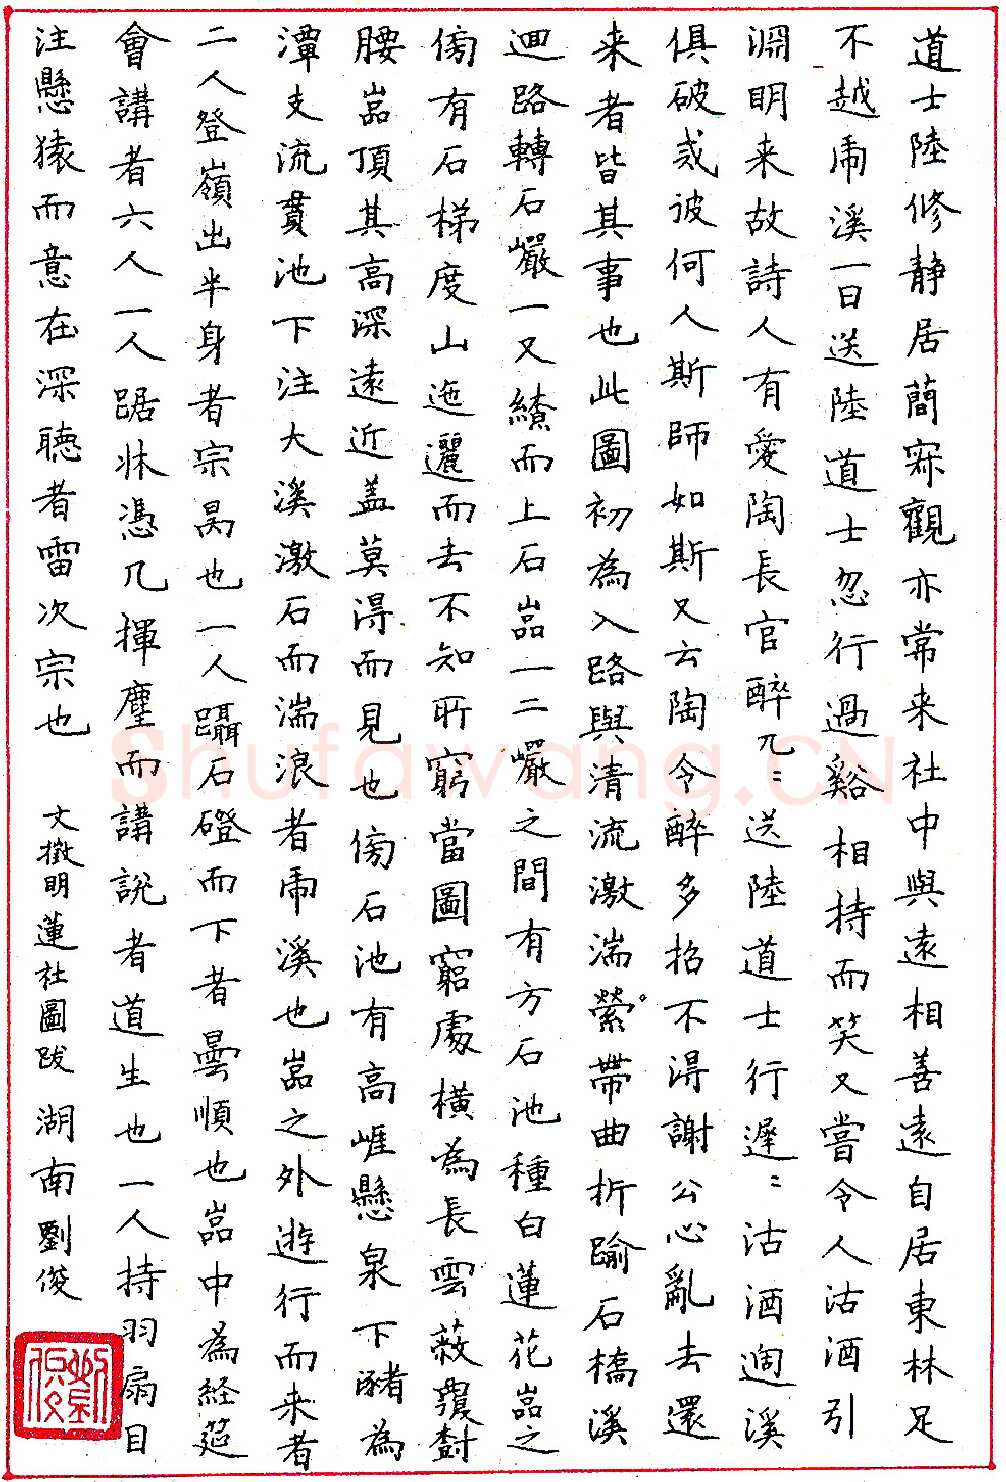 道士陸修静居蕳寂觀亦常来社中與遠相善遠自居東林足
不越虎溪一日送陸道士忽行過谿相持而笑又嘗令人沽酒引
淵明来故詩人有愛陶長官醉兀〻送陸道士行遲〻沽酒迴溪
俱破戒彼何人斯師如斯又云陶令醉多招不得謝公心亂去還
来者皆其事也此圖初為入路與清流激湍縈帶曲折踰石橋溪
迴路轉石巖一又繚而上石嵓一二巖之間有方石池種白蓮花嵓之
傍有石梯度山迤邐而去不知所窮當圖窮處橫為長雲蔽覆樹
腰嵓頂其高深遠近蓋莫得而見也傍石池有高崕懸泉下豬為
潭支流貫池下注大溪激石而湍浪者虎溪也嵓之外遊行而来者
二人登嶺出半身者宗昺也一人躡石磴而下者曇順也嵓中為経筵
會講者六人一人踞牀憑几揮麈而講說者道生也一人持羽扇目
注懸猿而意在深聽者雷次宗也 文徵明蓮社圖跋 湖南劉俊
劉俊
Shufawang.CN